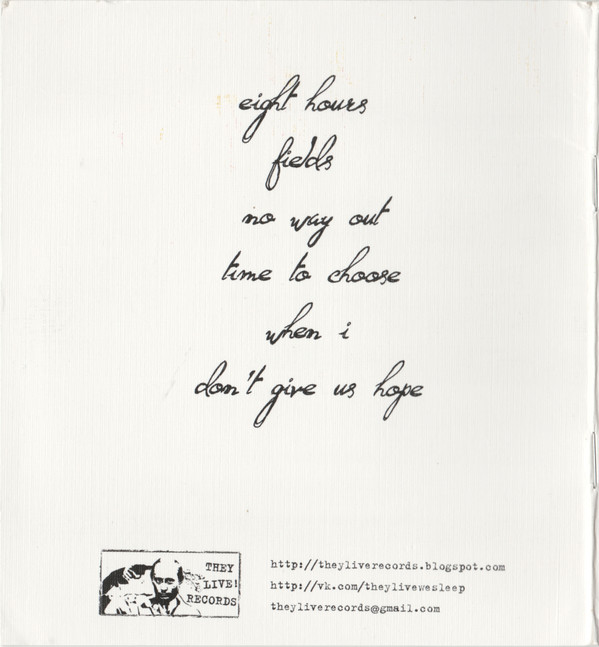 eight hours
fields
no way out
time to choose
when i
don't give us hope
THEY
LIVE!
RECORDS
http://theyliverecords.blogspot.com
http://vk.com/theylivewesleep
theyliverecords@gmail.com